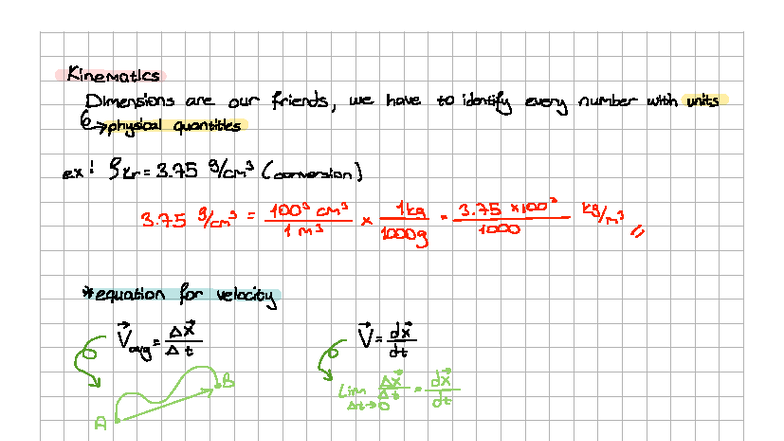 Kinematics
Dimensions are our friends, we have to identify every number with units
↳ physical quantities
ex: ρKr = 3.75 g/cm³ (conversion)
3.75 g/cm³ = 100³ cm³ / 1 m³ × 1kg / 1000g = 3.75 × 100³ / 1000 kg/m³ //
*equation for velocity
V⃗avg = Δx⃗ / Δt V⃗ = dx⃗ / dt
A B Lim Δt→0 Δx⃗ / Δt = dx⃗ / dt